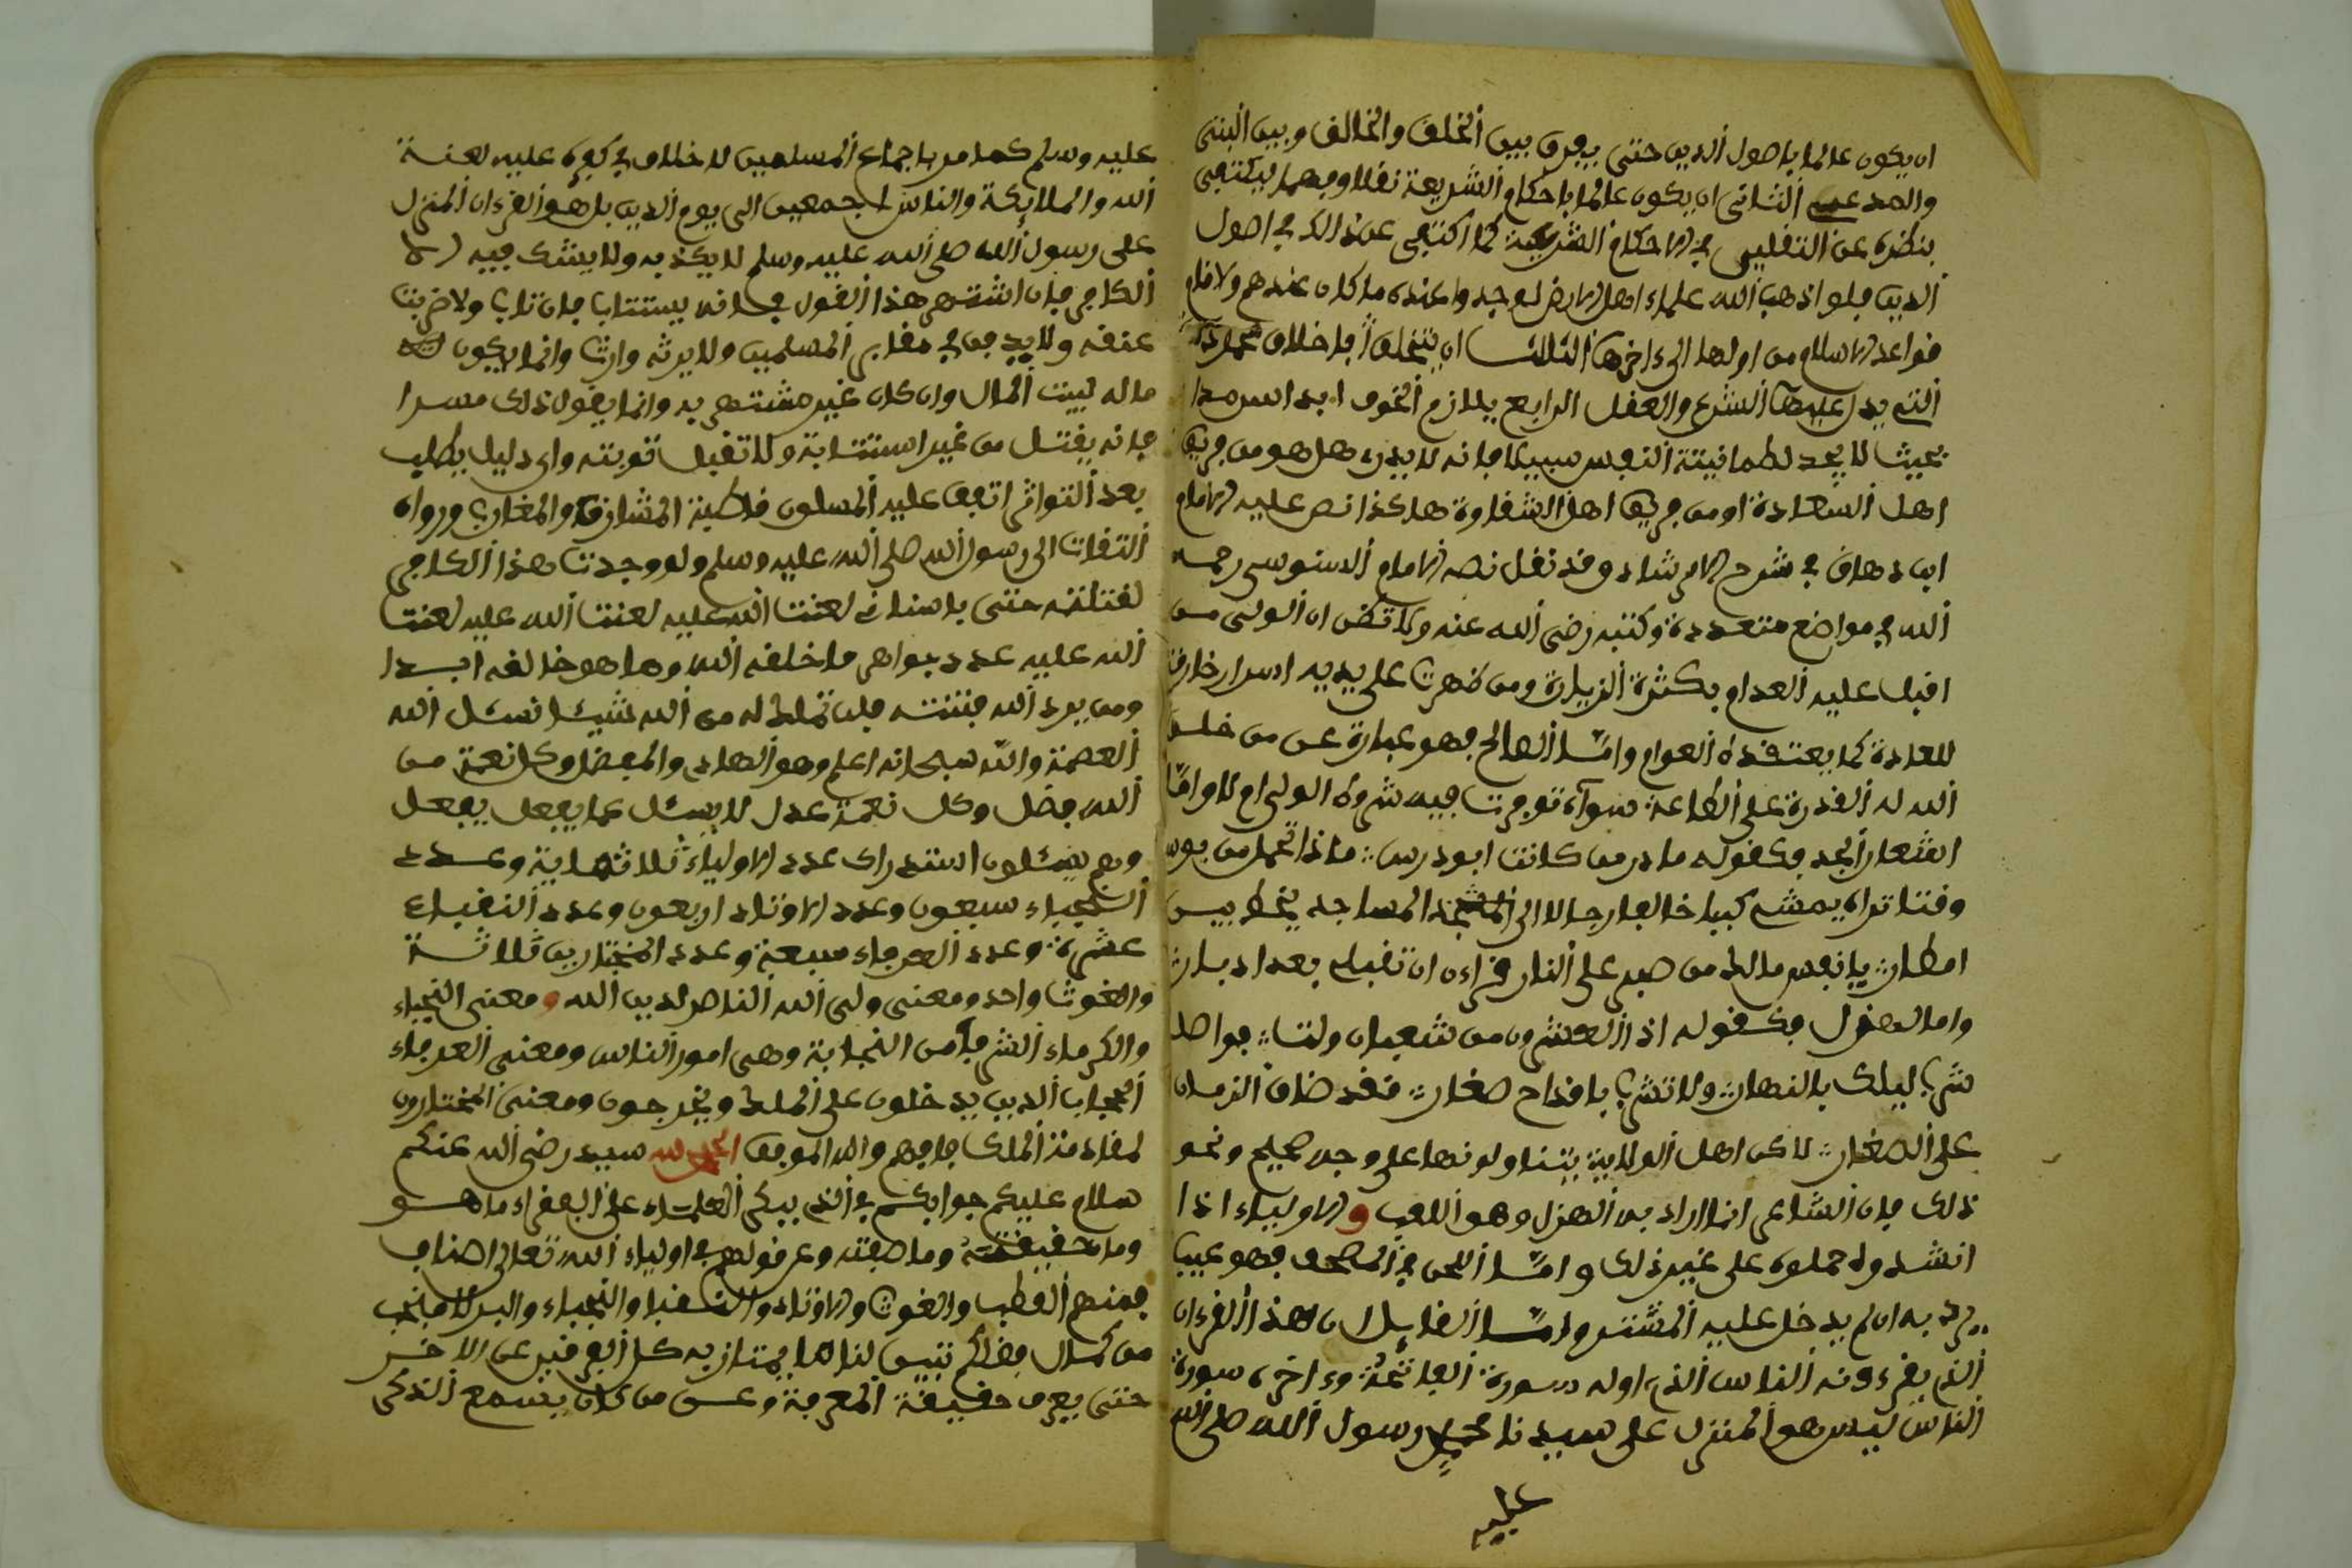 ان يكون عالما باصول الدين حتى يعرف بين الخلف والخالف وبين النبي
والمدعي الثاني ان يكون عالما باحكام الشريعة نقلا وفهما ليكتفي
بنظره عن التقليد في الاحكام الشرعية كما اكتفى عن ذالك في اصول
الدين فلو اذهب الله علماء اهل الارض لوجد واعنده ما كان عندهم ولاقام
قواعد الاسلام من اولها الى ءاخرها الثالث ان يتخلق با خلاق
التي يدل عليها الشرع والعقل الرابع يلازم الخوف ابدا سرمدا
بحيث لا يجد لطمانينة النفس سبيلا فانه لا يدري هل هو من فريق
اهل السعادة او من فريق اهل الشقاوة هاكذا نص عليه الامام
ابن دهاق في شرح الارشاد وقد نقل نصه الامام السنوسي رحمه
الله في مواضع متعددة وكتبه رضي الله عنه ولا تظن ان الولي من
اقبل عليه العوام بكثرة الزيارة ومن ظهرت على يديه اسرار خارقة
للعادة كما يعتقده العوام وامّا الصالح فهو عبارة عن من خلق
الله له القدرة على الطاعة سوآء توفرت فيه شروط الولي ام لا وامّا
اشعار الجد فكقوله ما در من كانت ابو درس ماذا تحمل من بوس
وقتا تراه يمشي كبيا خالعا رجالا الى المساجد يخط بيس
امطار يا نفس مالك من صبر على النار قراءن ان تقبلي بعد ادبار
واما الهزل فكقوله اذا العشرون من شعبان ولت فواصل
شرب ليلك بالنهار ولا تشرب باقداح صغار فقد ضاق الزمان
على الصغار لاكن اهل الولاية يتناولونها على وجه صحيح ونحو
ذلك فان الشاعر انما اراد به الهزل وهو اللعب والاولياء اذا
انشدوه حملوه على غير ذلك وامّا اللحن في المصحف فهو عيب
يرد به ان لم يدخل عليه المشتري وامّا القايل ان هذا القرءان
الذي يقرءونه الناس الذي اوله سورة الفاتحة وءاخره سورة
الناس ليس هو المنزل على سيدنا محمد رسول الله صلى الله
عليه
عليه وسلم كما مر باجماع المسلمين لا خلاف في كفره عليه لعنة
الله والملايكة والناس اجمعين الى يوم الدين بل هو القرءان المنزل
على رسول الله صلى الله عليه وسلم لا يكذبه ولا يشك فيه الا
الكافر فان اشتهر هذا القول فانه يستتاب فان تاب والا ضربت
عنقه ولا يدفن في مقابر المسلمين ولا يرثه وارث وانما يكون
ماله لبيت المال وان كان غير مشتهر به وانما يقول ذلك مسرا
فانه يقتل من غير استتابة ولا تقبل توبته واي دليل يطلب
بعد التواتر اتفق عليه المسلمون قاطبة المشارقة والمغارب ورواه
الثقات الى رسول الله صلى الله عليه وسلم ولو وجدت هذا الكافر
لقتلته حتى باسناني لعنت الله عليه لعنت الله عليه لعنت
الله عليه عدد جواهر ما خلقه الله وما هو خالقه ابدا
ومن يرد الله فتنته فلن تملك له من الله شيئا نسئل الله
العصمة والله سبحانه اعلم وهو الهادي والمفضل وكل نعمة من
الله فضل وكل نقمة عدل لا يسئل عما يفعل يفعل
وهم يسئلون استدراك عدد الاولياء ثلاثماية وعدد
النجباء سبعون وعدد الاوتاد اربعون وعدد النقباء
عشرة وعدد العرفاء سبعة وعدد المختارين ثلاثة
والغوث واحد ومعنى ولي الله الناصر لدين الله ومعنى النجباء
والكرماء الشرفاء من النجابة وهي امور الناس ومعنى العرفاء
الحجاب الذين يدخلون على الملك ويخرجون ومعنى المختارون
لمفاد منة الملك فافهم والله الموفق الحمد لله سيد رضي الله عنكم
سلام عليكم جوابكم في الذي ينكر العلماء على الفقراء ما هو
وما حقيقته وما صفته وعن قولهم في اولياء الله تعالى اصناف
فمنهم القطب والغوث والاوتاد والنقباء والنجباء والبدلا فنحب
من كمال فضلكم تبين لنا ما يمتاز به كل الفرقتين عن الاخر
حتى يعرف حقيقة المعرفة وعن من كان يسمع الذكر